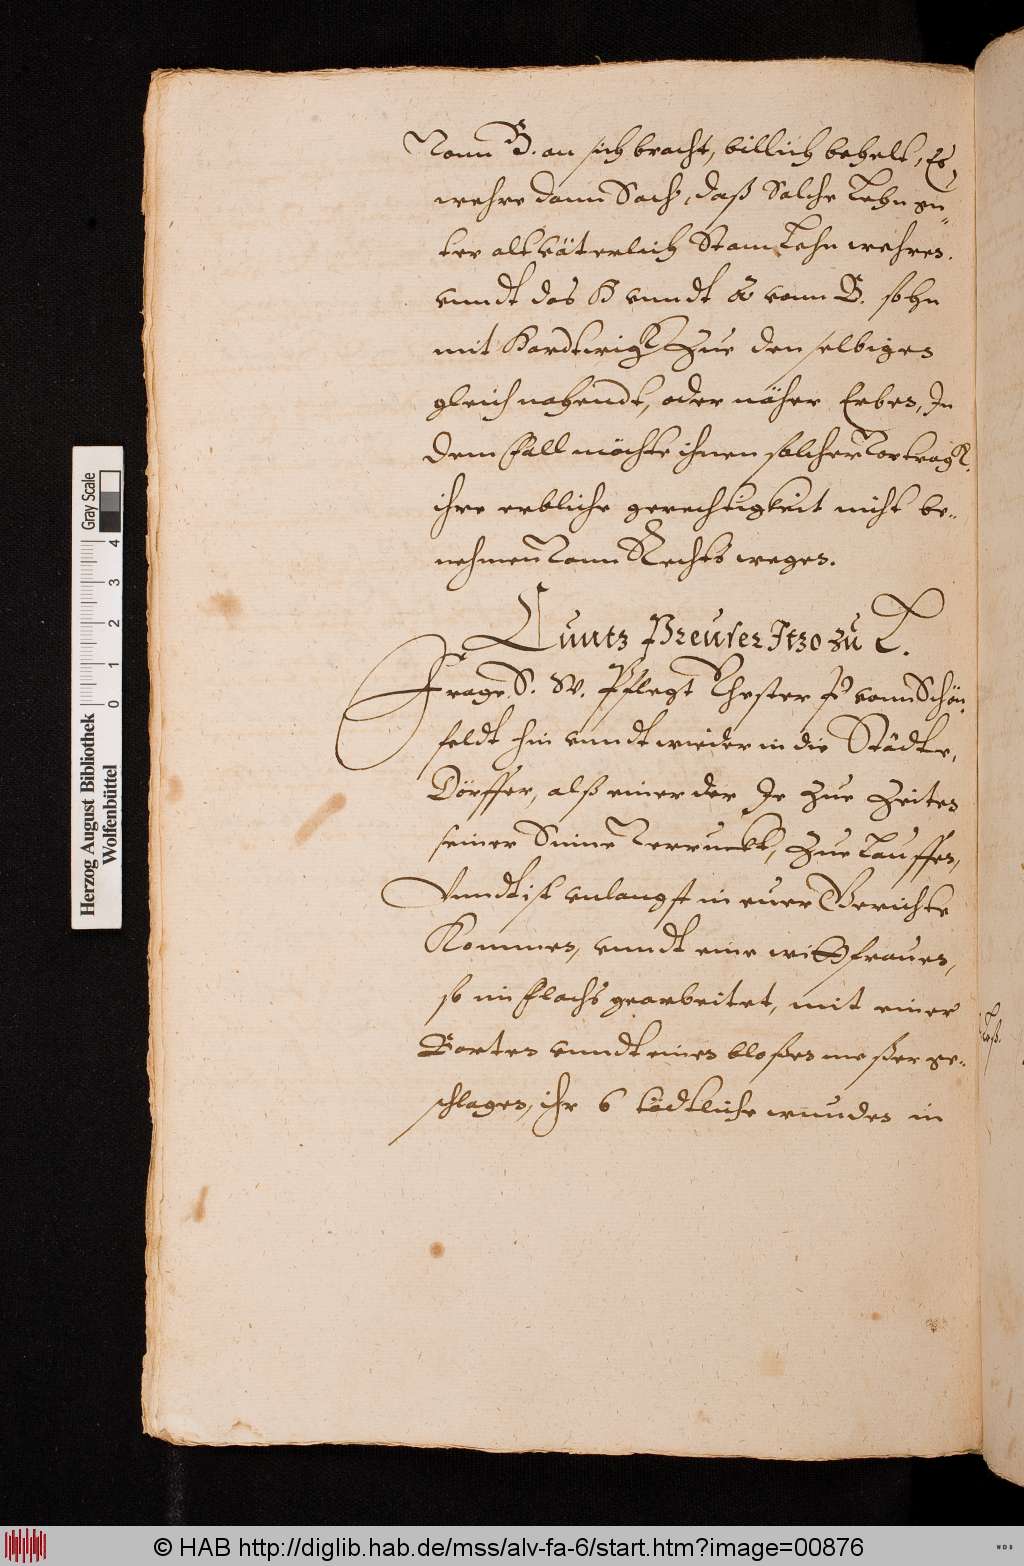 Vonn B. an sich bracht, billich behelt, Es
wehre dann Sach, daß Solche Lehn gu-
ter altväterlich Stam Lehn wehren.
vnndt das H vnndt vonn B. sohn
mit Hardtwigk Zue denselbigen
gleich nahendt, oder näher Erben, In
dem fall möchte ihnen solcher Vortragk
ihre erbliche gerechtigkeit nicht be-
nehmen Vonn Rechts wegen.
Cuntz Preuser Itzo zu L.
Frage S. W. Pflegt vonn Schön
feldt hin vnndt wieder in die Städte,
Dörffer, alß einer der Je Zue Zeiten
seiner Sinne Verruckt, Zue Lauffen,
Vnndt ist vnlangst in euer Gerichte
Kommen, vnndt eine wittfrauen,
so im flachs gearbeitet, mit einer
Barten vnndt einen bloßen meßer ge-
schlagen, ihr 6 tödtliche wunden in
Gray Scale
0 1 2 3 4
Herzog August Bibliothek
Wolfenbüttel
© HAB http://diglib.hab.de/mss/alv-fa-6/start.htm?image=00876